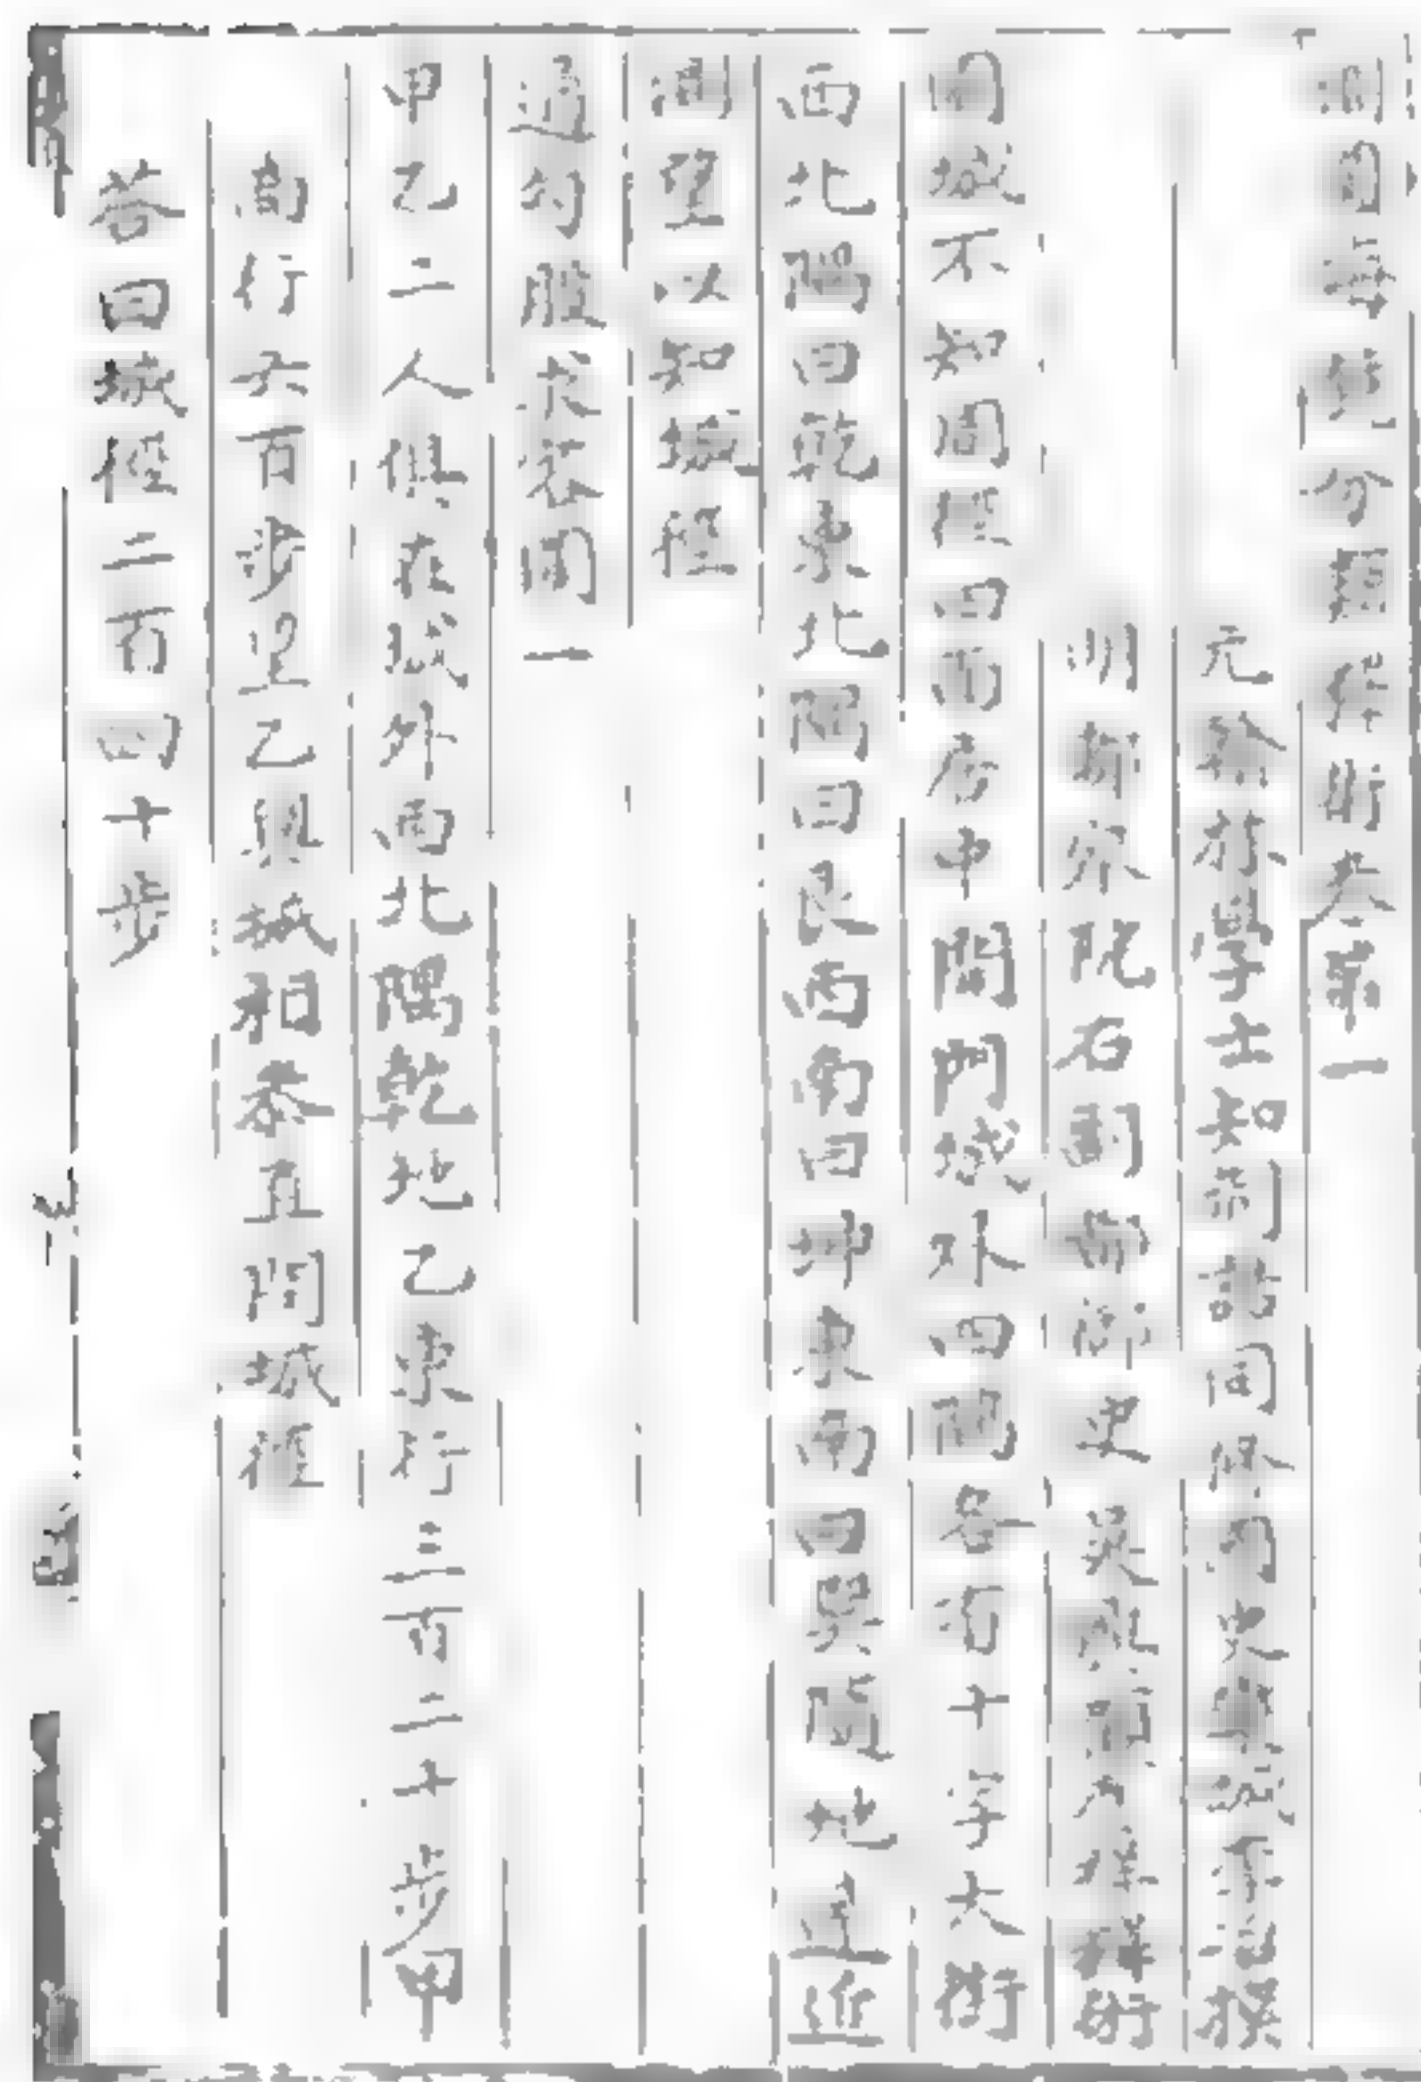 測圓海鏡分類釋術卷第一
元翰林學士知制誥同修國史欒城李冶撰
明都察院右副都御史吳興顧應祥釋術
圓城不知周徑四面居中開門門城外四間各有十字大街
西北隅曰乾東北隅曰艮西南曰坤東南曰巽隨地遠近
測望以知城徑
通勾股求容圓一
甲乙二人俱在城外西北隅乾地乙東行三百二十步甲
南行六百步望乙與城相參直問城徑
答曰城徑二百四十步